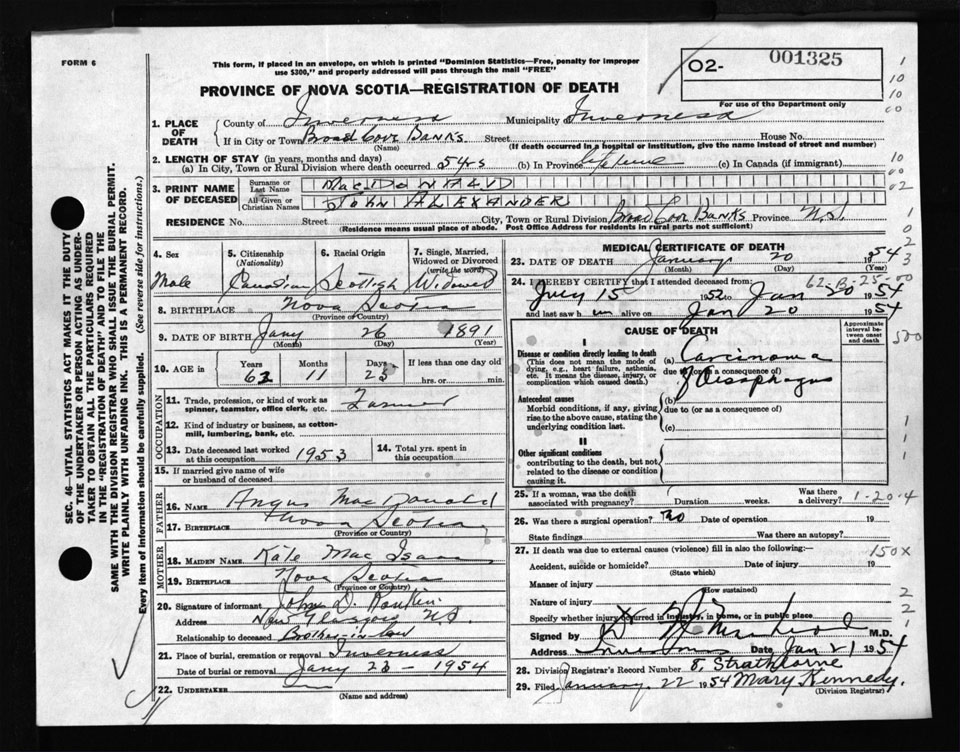 FORM 6
This form, if placed in an envelope, on which is printed "Dominion Statistics—Free, penalty for improper
use $300," and properly addressed will pass through the mail "FREE"
O2- 001325
For use of the Department only
PROVINCE OF NOVA SCOTIA—REGISTRATION OF DEATH
1. PLACE OF DEATH County of Inverness Municipality Inverness
If in City or Town Broad Cove Banks Street House No.
(Name) (If death occurred in a hospital or institution, give the name instead of street and number)
2. LENGTH OF STAY (in years, months and days)
(a) In City, Town or Rural Division where death occurred 54rs (b) In Province lifetime (c) In Canada (if immigrant)
3. PRINT NAME OF DECEASED Surname or Last Name MacDONALD
All Given or Christian Names JOHN ALEXANDER
RESIDENCE No. Street City, Town or Rural Division Broad Cove Banks Province N.S.
(Residence means usual place of abode. Post Office Address for residents in rural parts not sufficient)
4. Sex 5. Citizenship (Nationality) 6. Racial Origin 7. Single, Married, Widowed or Divorced (write the word)
Male Canadian Scottish Widowed
8. BIRTHPLACE Nova Scotia
(Province or Country)
9. DATE OF BIRTH Jany 26 1891
(Month) (Day) (Year)
10. AGE in Years Months Days If less than one day old
63 11 23 hrs. or min.
OCCUPATION
11. Trade, profession, or kind of work as spinner, teamster, office clerk, etc. Farmer
12. Kind of industry or business, as cotton-mill, lumbering, bank, etc.
13. Date deceased last worked at this occupation 1953 14. Total yrs. spent in this occupation
15. If married give name of wife or husband of deceased
FATHER
16. NAME Angus MacDonald
17. BIRTHPLACE Nova Scotia
(Province or Country)
MOTHER
18. MAIDEN NAME Kate MacIsaac
19. BIRTHPLACE Nova Scotia
(Province or Country)
20. Signature of informant John D. Rankin
Address New Glasgow NS
Relationship to deceased Brother-in-law
21. Place of burial, cremation or removal Inverness
Date of burial or removal Jany 23 - 1954
22. UNDERTAKER
(Name and address)
MEDICAL CERTIFICATE OF DEATH
23. DATE OF DEATH January 20 1954
(Month) (Day) (Year)
24. I HEREBY CERTIFY that I attended deceased from: 62-B-25-00
July 15 1952 to Jan 20 1954
and last saw h im alive on Jan 20 1954
CAUSE OF DEATH
Approximate interval between onset and death
I
Disease or condition directly leading to death
(This does not mean the mode of dying, e.g., heart failure, asthenia, etc. It means the disease, injury, or complication which caused death.)
(a) Carcinoma
due to (or as a consequence of)
of Oesophagus
Antecedent causes
Morbid conditions, if any, giving rise to the above cause, stating the underlying condition last.
(b)
due to (or as a consequence of)
(c)
II
Other significant conditions
contributing to the death, but not related to the disease or condition causing it.
25. If a woman, was the death associated with pregnancy? Duration weeks. Was there a delivery? 1-20-4
26. Was there a surgical operation? No Date of operation 19
State findings Was there an autopsy?
27. If death was due to external causes (violence) fill in also the following:— 150X
Accident, suicide or homicide? Date of injury 19
(State which)
Manner of injury
(How sustained)
Nature of injury
Specify whether injury occurred in industry, in home, or in public place
Signed by MacLeod M.D.
Address Inverness Date Jan 21 1954
28. Division Registrar's Record Number 8. Strathlorne
29. Filed January 22 1954 Mary Kennedy.
(Division Registrar)
SEC. 46—VITAL STATISTICS ACT MAKES IT THE DUTY
OF THE UNDERTAKER OR PERSON ACTING AS UNDER-
TAKER TO OBTAIN ALL THE PARTICULARS REQUIRED
IN THE "REGISTRATION OF DEATH" AND TO FILE THE
SAME WITH THE DIVISION REGISTRAR WHO SHALL ISSUE THE BURIAL PERMIT.
WRITE PLAINLY WITH UNFADING INK. THIS IS A PERMANENT RECORD.
Every item of information should be carefully supplied. (See reverse side for instructions.)
1
10
10
00
10
00
02
1
0
2
3
500
1
1
1
2
2
1